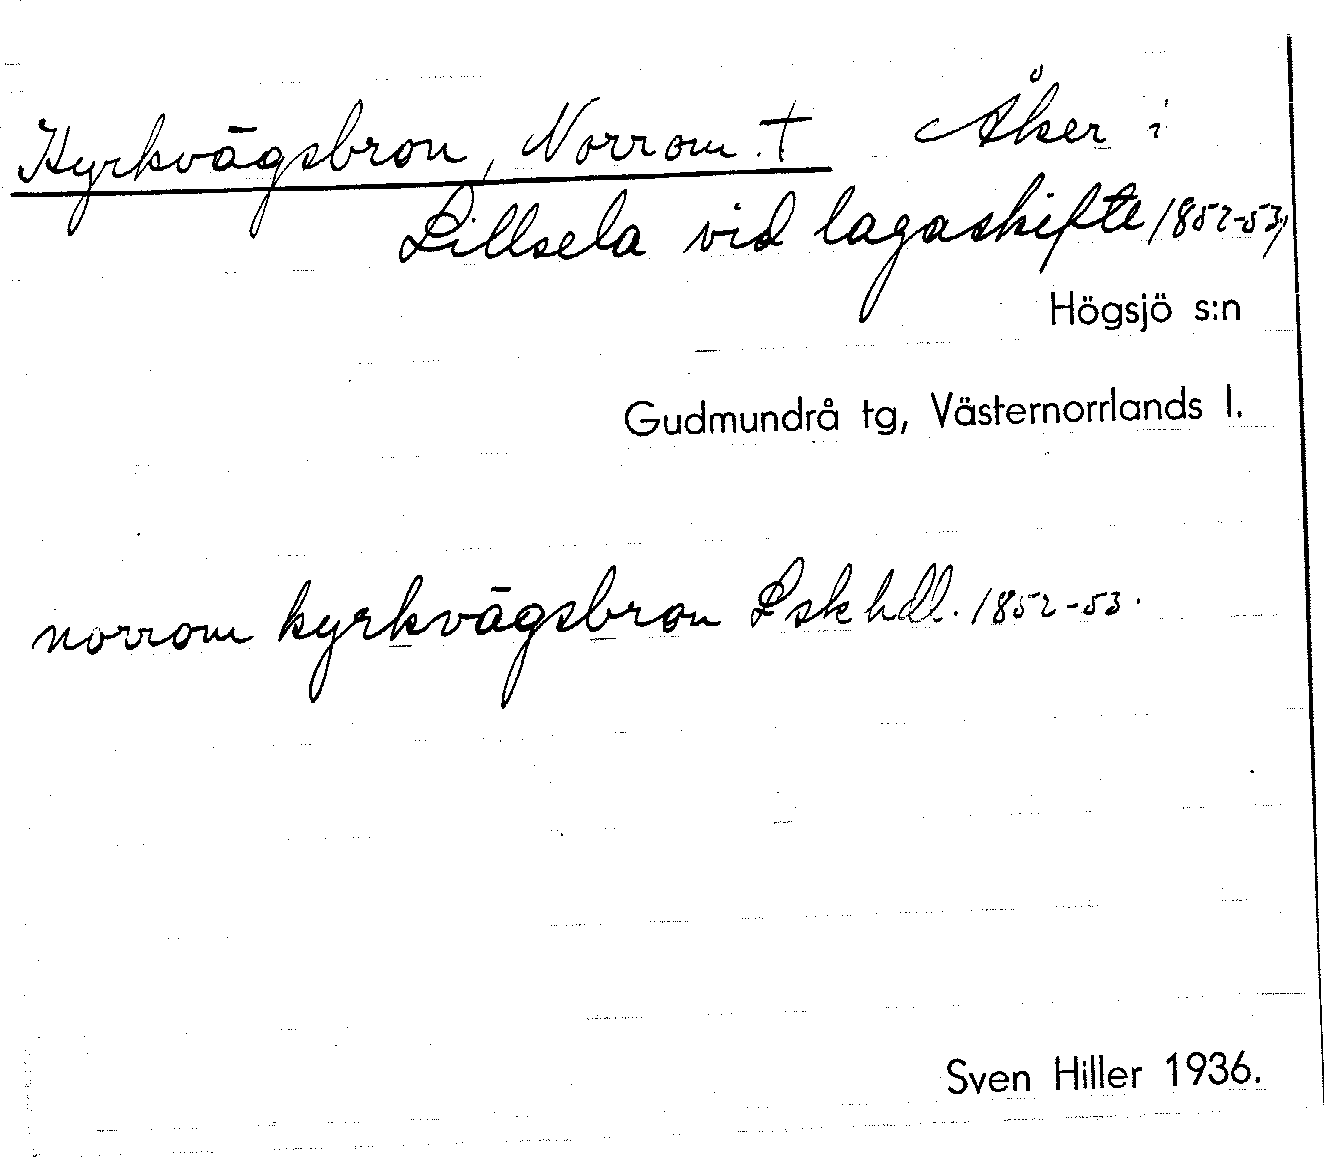 Kyrkvägsbron, Norrom. † Åker i
Lillsela vid lagaskifte 1852-53,
Högsjö s:n
Gudmundrå tg, Västernorrlands l.
norrom kyrkvägsbron Lskhdl. 1852-53.
Sven Hiller 1936.